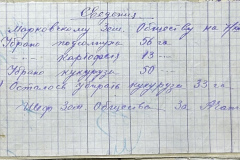 Сведения
Марковскому Зем. Обществу на
Убрано подсолнуха 56 га
Картофеля 13
Убрано кукурузы 50
Осталось убирать кукурузы 33 га
Зем. Общества За